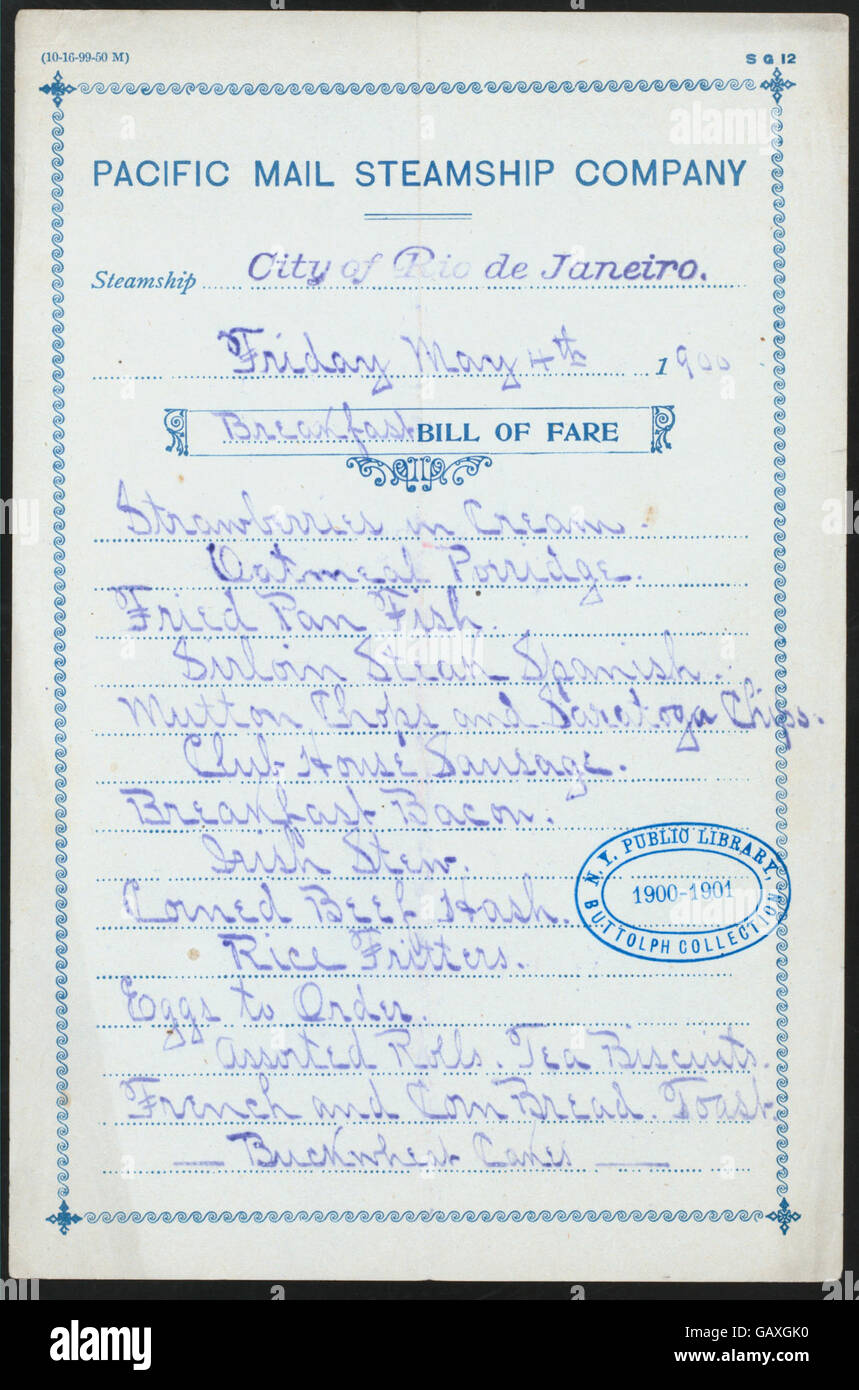 (10-16-99-50 M) S G 12
PACIFIC MAIL STEAMSHIP COMPANY
Steamship City of Rio de Janeiro.
Friday May 4th 1900
Breakfast BILL OF FARE
Strawberries in Cream.
Oatmeal Porridge.
Fried Pan Fish.
Sirloin Steak Spanish.
Mutton Chops and Saratoga Chips.
Club House Sausage.
Breakfast Bacon.
Irish Stew.
Corned Beef Hash.
N.Y. PUBLIC LIBRARY,
1900-1901
BUTTOLPH COLLECTION
Rice Fritters.
Eggs to Order.
Assorted Rolls. Tea Biscuits.
French and Corn Bread. Toast.
— Buckwheat Cakes —
alamy
Image ID: GAXGK0
www.alamy.com